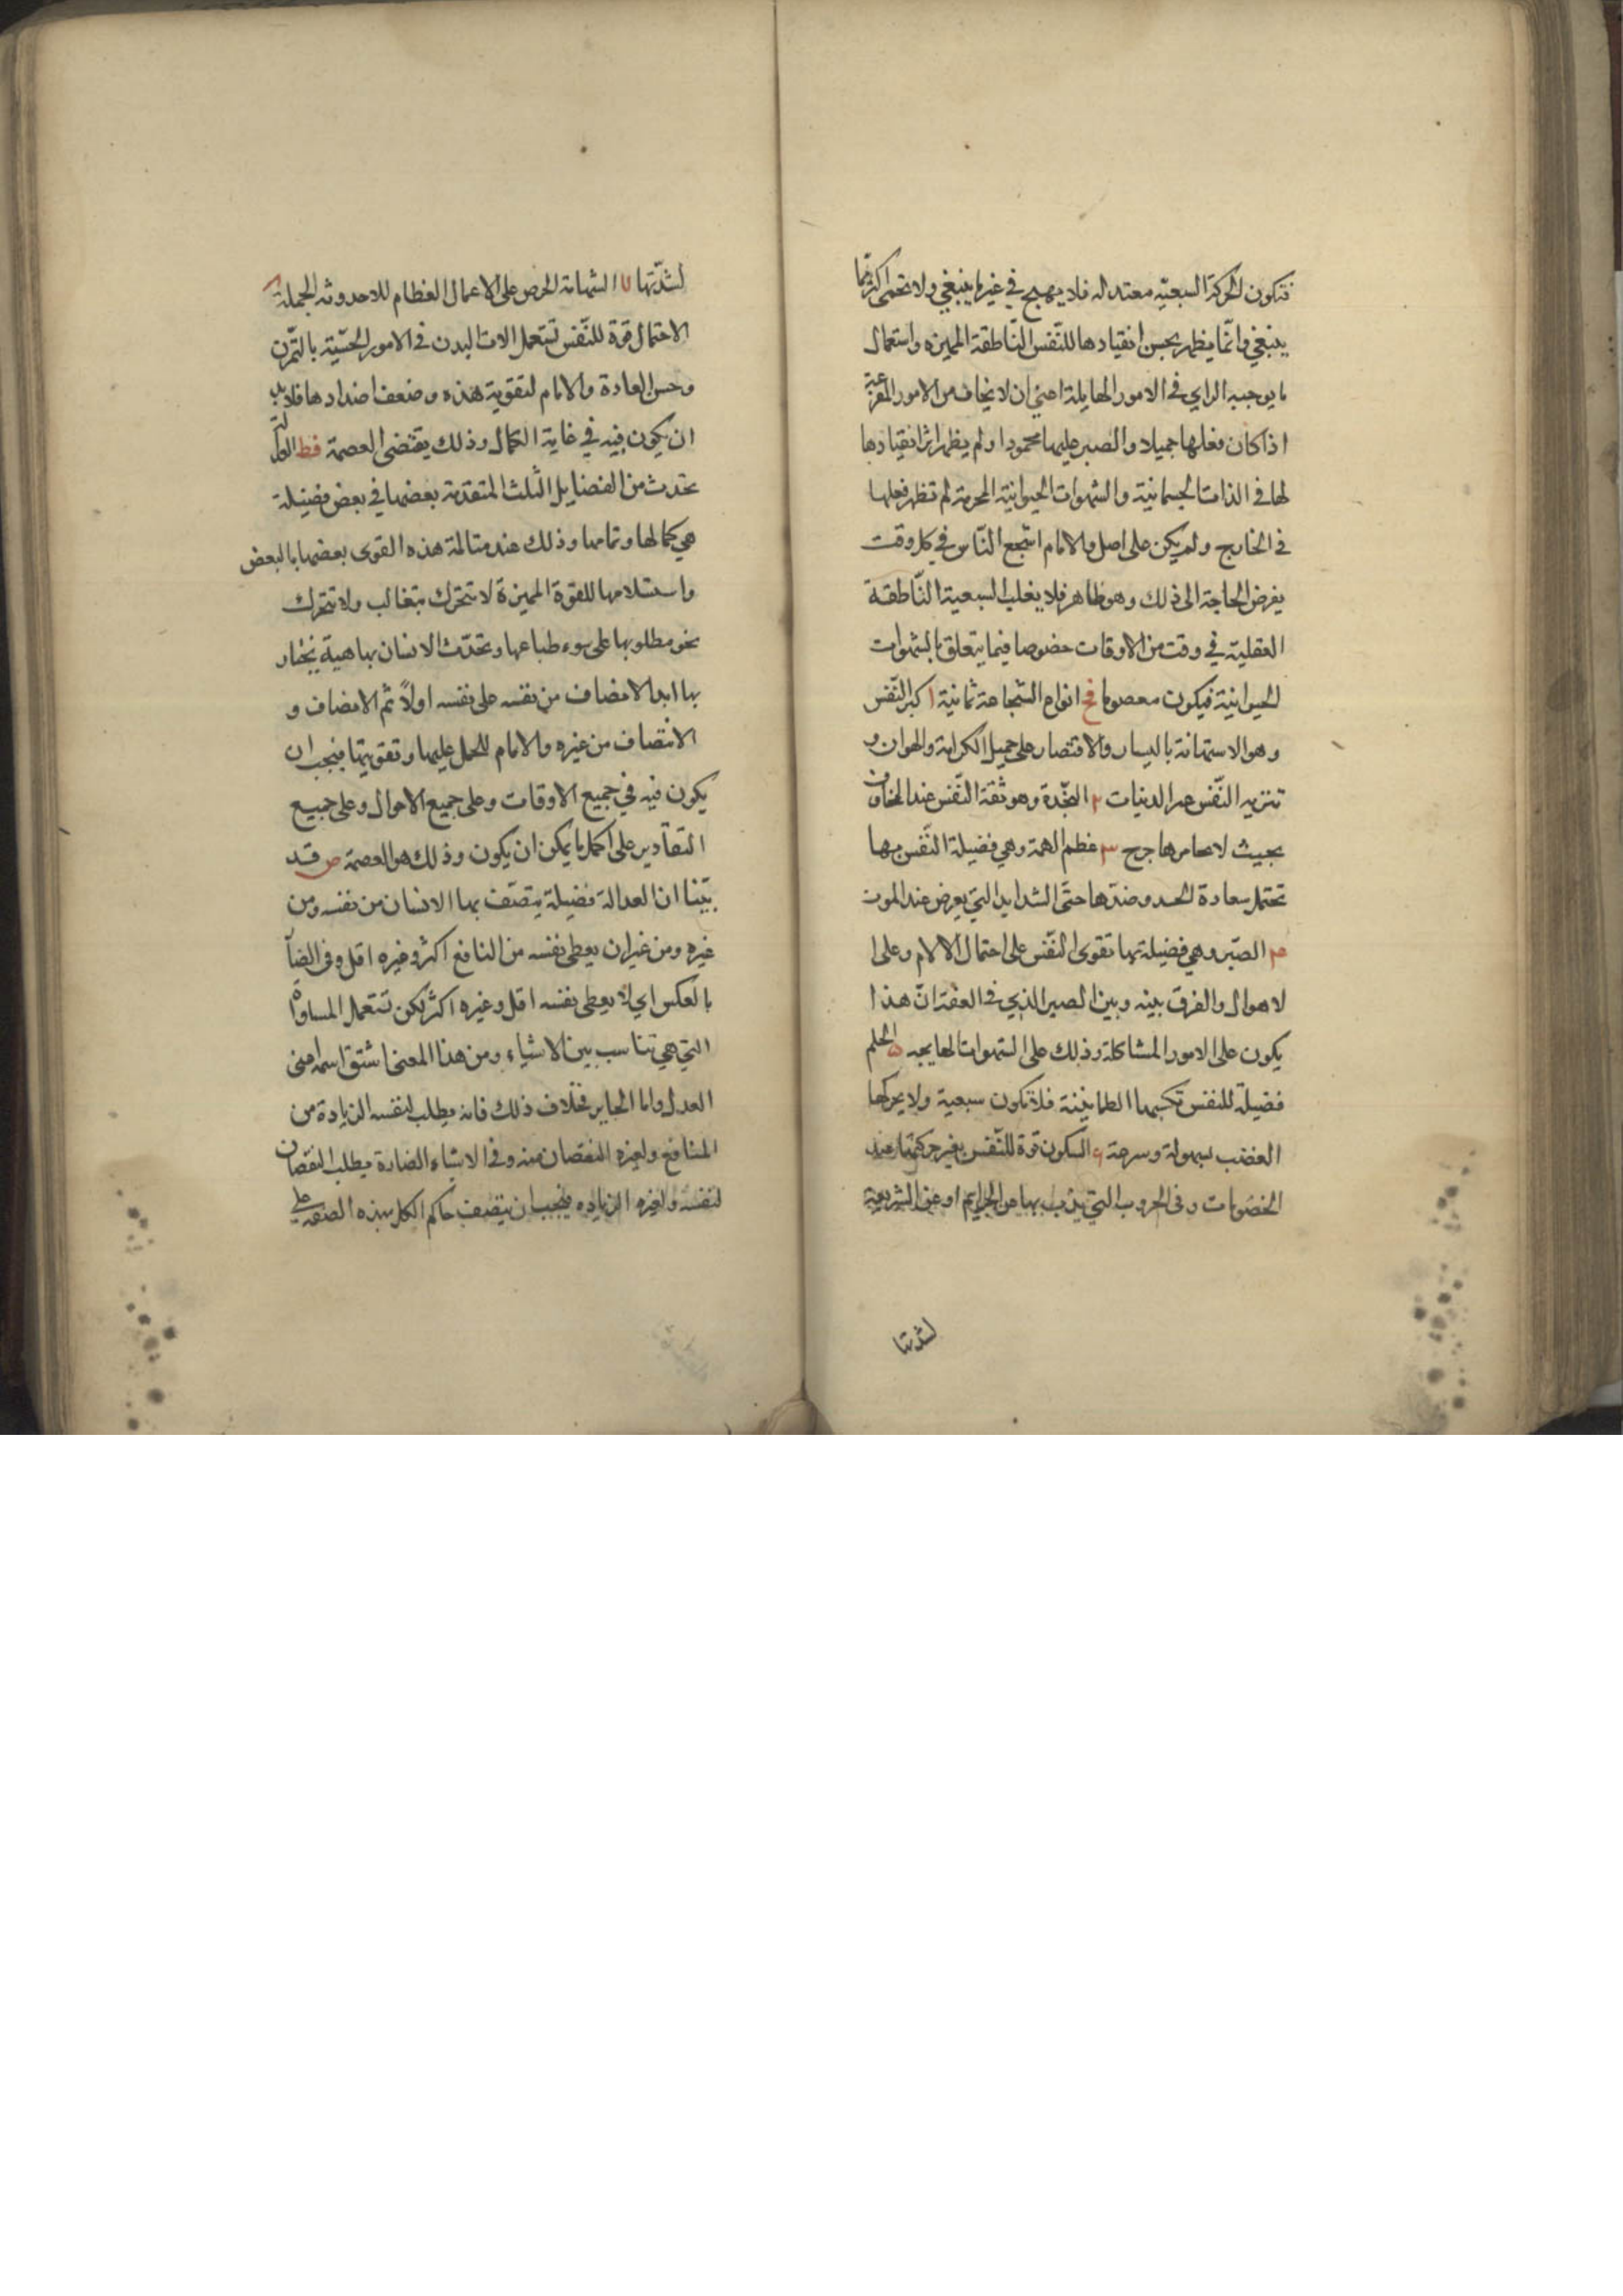 فتكون الحركة السبعيّة معتدله فلا يهيج في غير ما ينبغي ولا تحمى اكثر ممّا
ينبغي وانّما يظهر بحسن انقيادها للنّفس النّاطقة المميزه واستعمال
ما يوجبه الراي في الامور الهايلة اعني ان لا يخاف من الامور المفزعة
اذا كان فعلها جميلا والصبر عليها محمودا ولم يظهر اثر انقيادها
لها في الذات الجسمانية والشهوات الحيوانية المحرمة لم تظهر فعلها
في الخارج ولم يكن على اصل والامام اشجع النّاس في كل وقت
يفرض الحاجة الى ذلك وهو ظاهر فلا يغلب السبعية النّاطقة
العقلية في وقت من الاوقات خصوصا فيما يتعلق بالشهوات
الحيوانية فيكون معصوما فح انواع الشجاعة ثمانية ١ كبر النّفس
وهو الاستهانة باليسار والاقتصار على جميل الكرامة والهوان و
تنزيه النّفس عن الدنيات ٢ النجّدة وهو ثقة النّفس عند المخاوف
بحيث لا يخامرها جرح ٣ عظم الهمة وهي فضيلة النّفس بها
تحتمل سعادة الجد وضدّها حتّى الشدايد التي يعرض عند الموت
٤ الصّبر وهي فضيلة بها تقوى النّفس على احتمال الالام وعلى ا
لاهوال والفرق بينه وبين الصبر الذي في العفة انّ هذا
يكون على الامور المشاكلة وذلك على الشهوات الهايجه ٥ الحلم
فضيلة للنفس تكسبها الطمانينة فلا تكون سبعية ولا يحركها
الغضب بسهولة وسرعة ٦ السكون قوة للنّفس بغير حركتها عند
الخصومات وفي الحروب التي يذب بها عن الحرايم او عن الشريعة
لشدتها
لشدّتها ٧ الشهامة الحرص على الاعمال العظام للاحدوثه الجملة ٨
الاحتمال قوة للنّفس تستعمل الات البدن في الامور الحسّية بالتمّرن
وحسن العادة والامام لتقوية هذه وضعف اضدادها فلا بد
ان يكون فيه في غاية الكمال وذلك يقتضى العصمة فط العدالة
تحدث من الفضايل الثلث المتقدمة بعضها في بعض فضيلة
هي كمالها وتمامها وذلك عند مسالمة هذه القوى بعضها بالبعض
واستسلامها للقوة المميزة لا تتحرك بتغالب ولا تتحرك
نحو مطلوبها على سوء طباعها وتحدّث الانسان بها هيئة يختار
بها ابدا لانصاف من نفسه على نفسه اولاً ثم الانصاف و
الانتصاف من غيره والامام للحمل عليها وتقويتها فيجب ان
يكون فيه في جميع الاوقات وعلى جميع الاحوال وعلى جميع
التقادير على اكمل ما يمكن ان يكون وذلك هو العصمة ص قد
بيّنا ان العدالة فضيلة يتصّف بها الانسان من نفسه ومن
غيره ومن غير ان يعطى نفسه من النافع اكثر وغيره اقل وفى الضاّ
بالعكس اي لا يعطى نفسه اقل وغيره اكثر لكن تستعمل المساواة
التي هي تناسب بين الاشياء ومن هذا المعنى اشتق اسمه اعنى
العدل واما الجاير فخلاف ذلك فانه يطلب لنفسه الزيادة من
المنافع ولغيره النقصان منه وفي الاشياء الضارة يطلب النقصان
لنفسه ولغيره الزياده فيجب ان يتصف حاكم الكل بهذه الصفة على